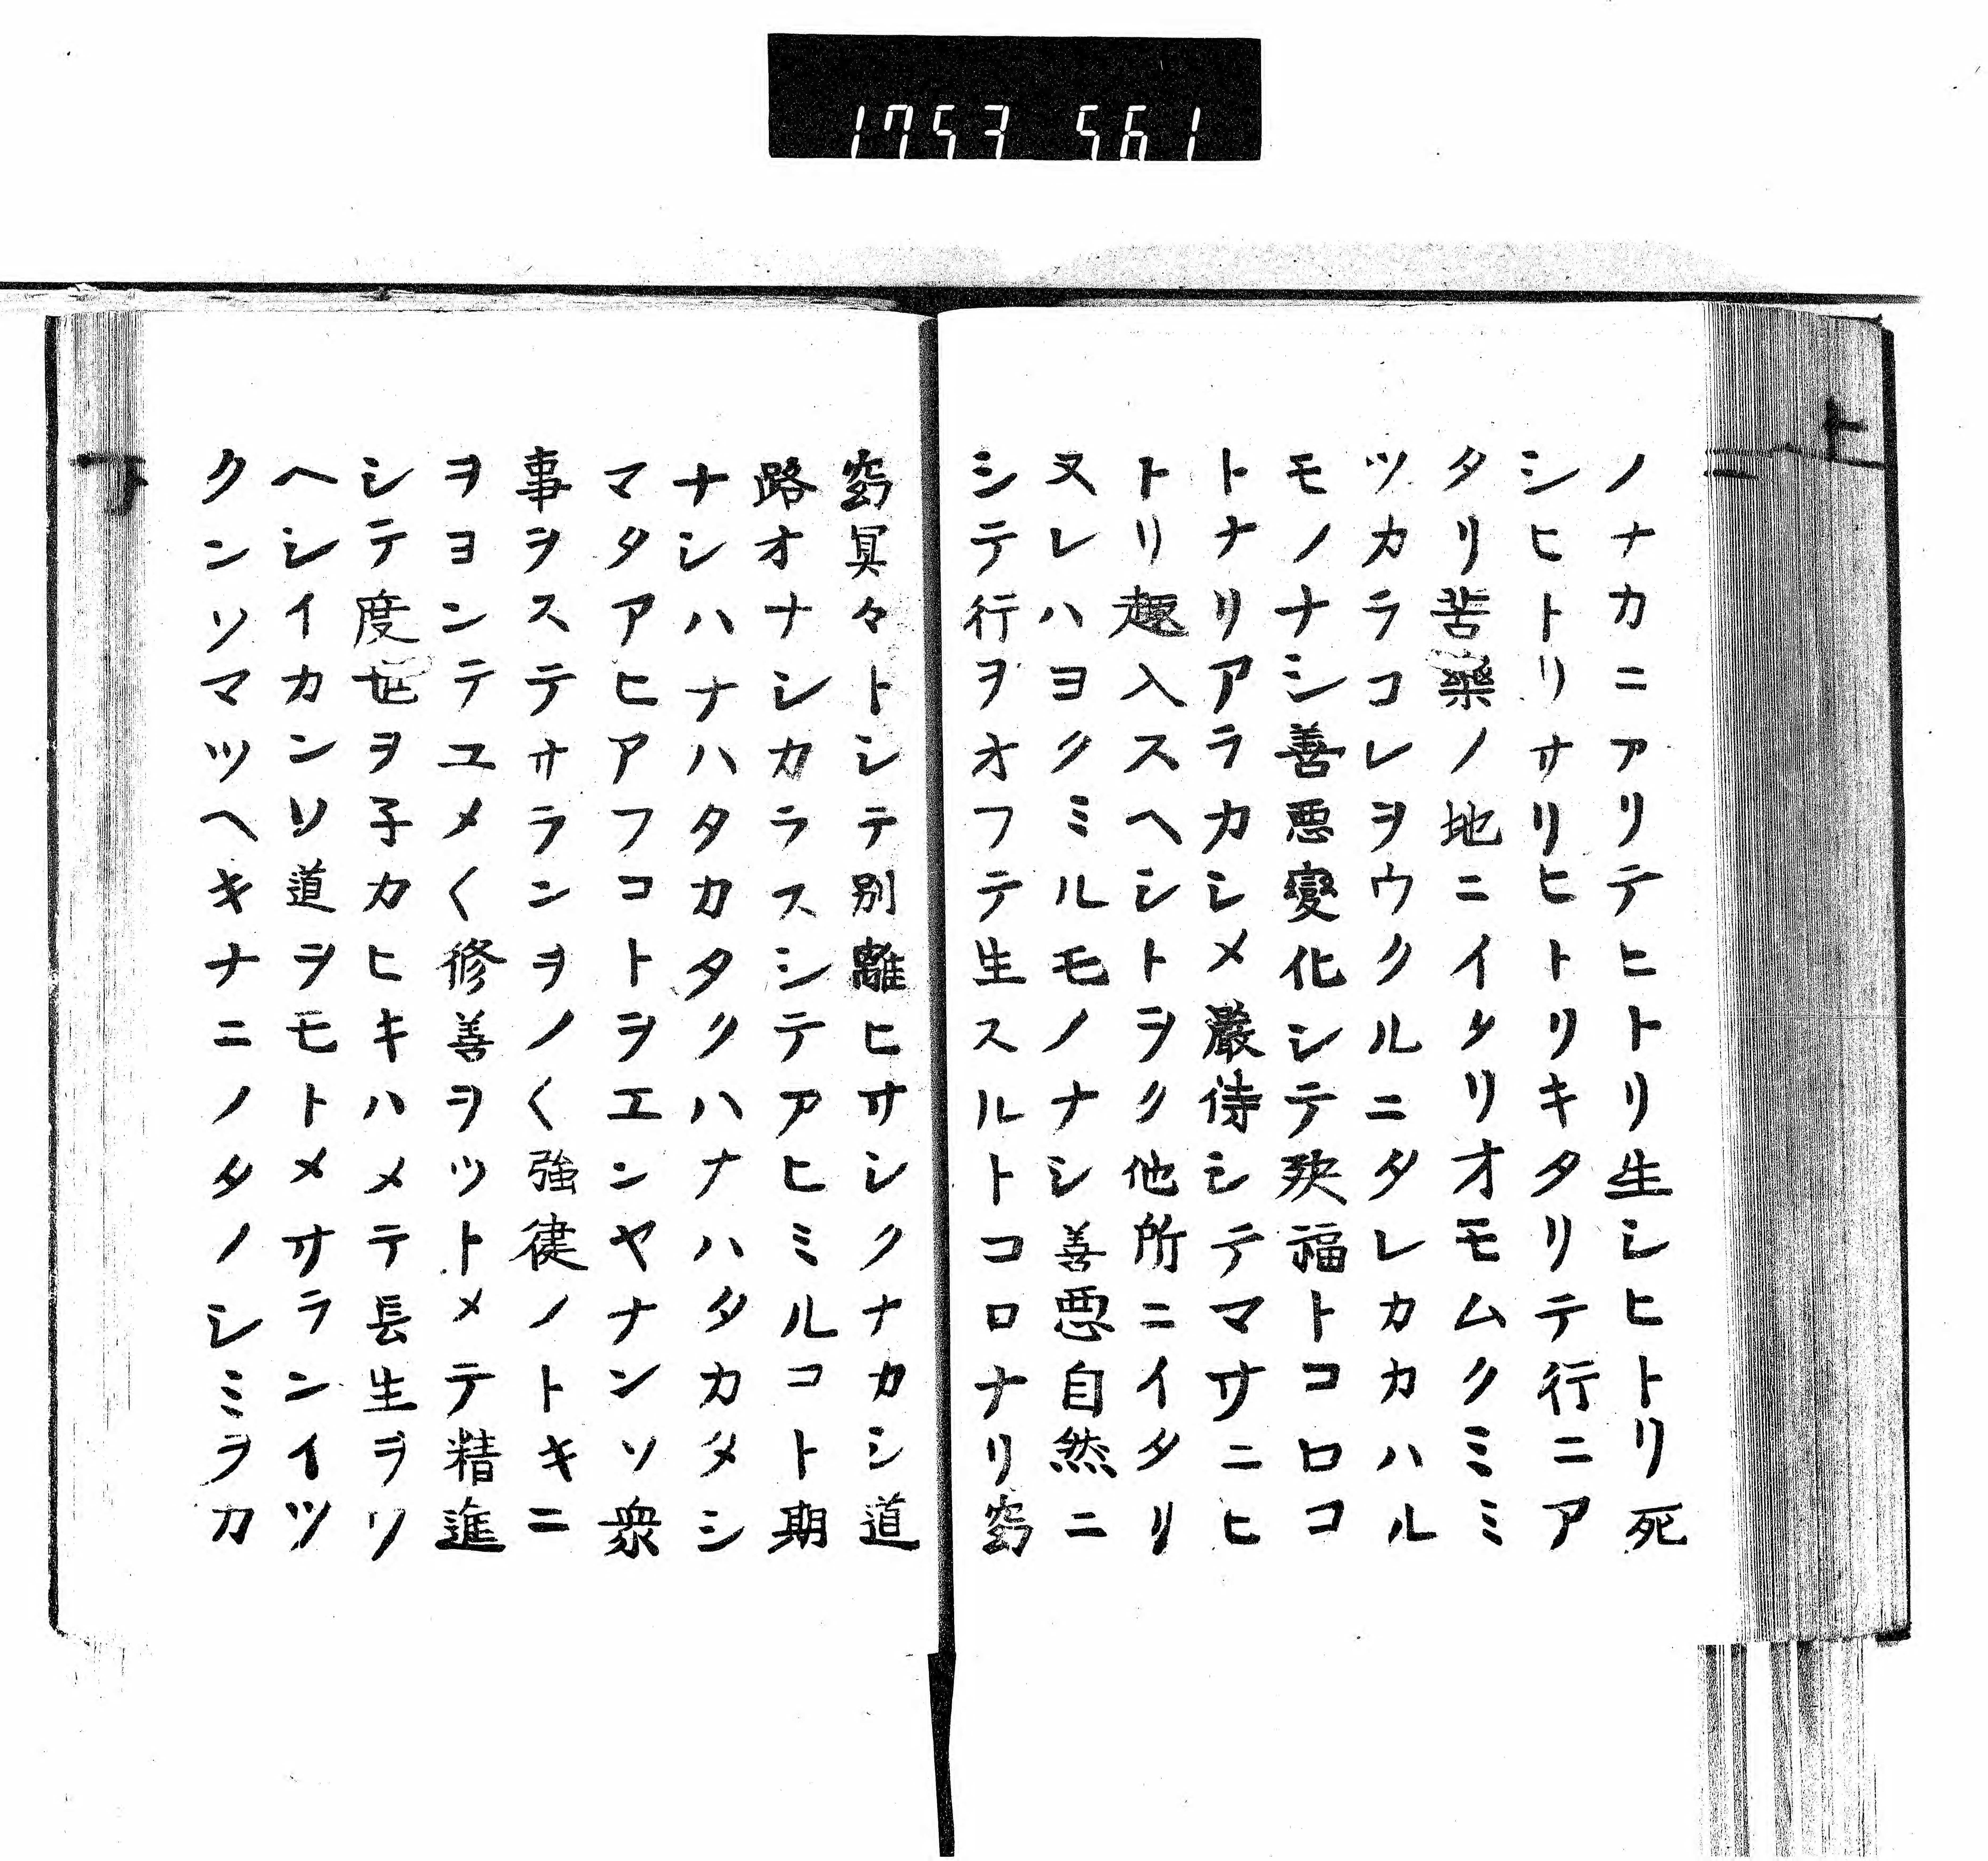 1753 561
上
ノナカニアリテヒトリ生シヒトリ死
シヒトリサリヒトリキタリテ行ニア
タリ苦樂ノ地ニイタリオモムクミミ
ツカラコレヲウクルニタレカカハル
モノナシ善悪變化シテ殃福トコロコ
トナリアラカシメ嚴待シテマサニヒ
トリ趣入スヘシトヲク他所ニイタリ
ヌレハヨクミルモノナシ善悪自然ニ
シテ行ヲオフテ生スルトコロナリ窈
窈冥々トシテ別離ヒサシクナカシ道
路オナシカラスシテアヒミルコト期
ナシハナハタカタクハナハタカタメシ
マタアヒアフコトヲエンヤナンソ衆
事ヲステサランヲノ〱強健ノトキニ
ヲヨンテユメ〱修善ヲツトメテ精進
シテ度世ヲ子カヒキハメテ長生ヲソ
ヘシイカンソ道ヲモトメサランイツ
クンソマツヘキナニノタノシミヲカ
下